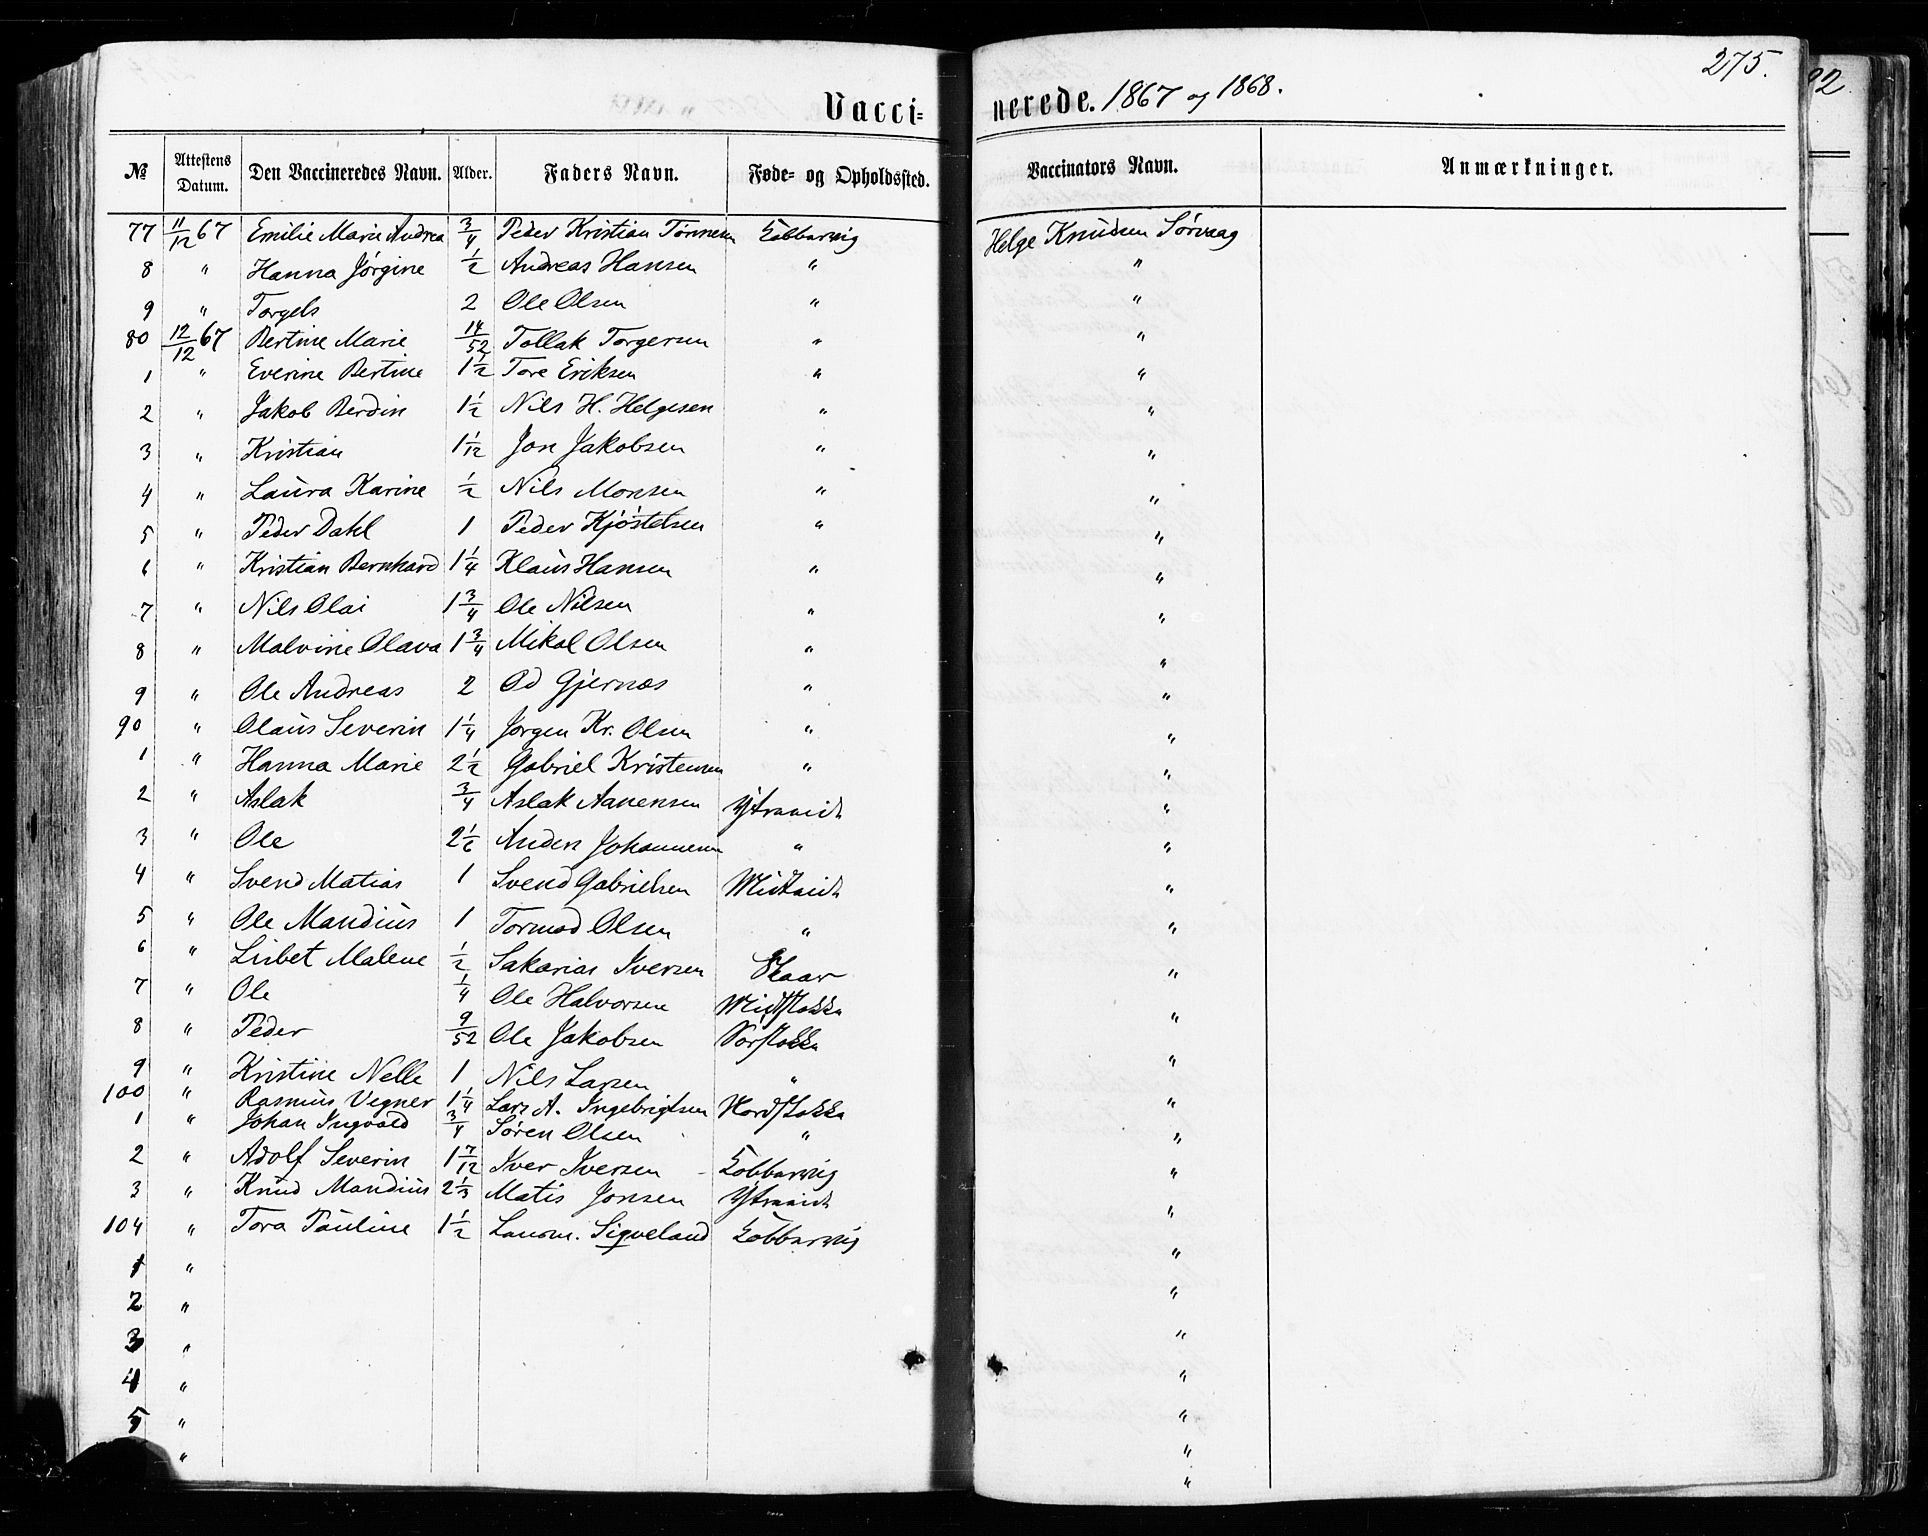 275.
Vacci= nerede. 1867 og 1868.
№ Attestens Datum. Den Vaccineredes Navn. Alder. Faders Navn. Føde= og Opholdssted. Vaccinators Navn. Anmærkninger.
77 11/12 67 Emilie Marie Andrea 3/4 Peder Kristian Tönnesen Kobbarvig Helge Knudsen Sørvaag
8 " Hanna Jørgine 1/2 Andreas Hansen " "
9 " Torgels 2 Ole Olsen " "
80 12/12 67 Bertine Marie 14/52 Tollak Torgersen " "
1 " Everine Bertine 1 1/2 Tore Eriksen " "
2 " Jakob Berdin 1 1/2 Nils H. Helgesen " "
3 " Kristian 1 1/12 Jon Jakobsen " "
4 " Laura Karine 1/2 Nils Monsen " "
5 " Peder Dahl 1 Peder Kjöstelsen " "
6 " Kristian Bernhard 1 1/4 Klaus Hansen " "
7 " Nils Olai 1 3/4 Ole Nilsen " "
8 " Malvine Olava 1 3/4 Mikal Olsen " "
9 " Ole Andreas 2 Od Gjernæs " "
90 " Olaus Severin 1 1/4 Jørgen Kr. Olsen " "
1 " Hanna Marie 2 1/2 Gabriel Kristensen " "
2 " Aslak 3/4 Aslak Aanensen Ytraaidt "
3 " Ole 2 1/2 Anders Johannesen " "
4 " Svend Matias 1 Svend Gabrielsen Midtaidt "
5 " Ole Mandius 1 Tormod Olsen " "
6 " Lisbet Malene 1/2 Sakarias Iversen Skaar "
7 " Ole 1/4 Ole Halvorsen Midtstokka "
8 " Peder 9/52 Ole Jakobsen Sørstokka "
9 " Kristine Nelle 1 Nils Larsen " "
100 " Rasmus Vegner 1 1/4 Lars A. Ingebrigtsen Nordstokka "
1 " Johan Ingvald 3/4 Søren Olsen " "
2 " Adolf Severin 1 7/12 Iver Iversen Kobbarvig "
3 " Knud Mandius 2 1/3 Matis Jonsen Ytraaidt "
104 " Tora Pauline 1 1/2 Lensm. Sigveland Kobbarvig "
1 " "
2 " "
3 " "
4 " "
5 " "
" "